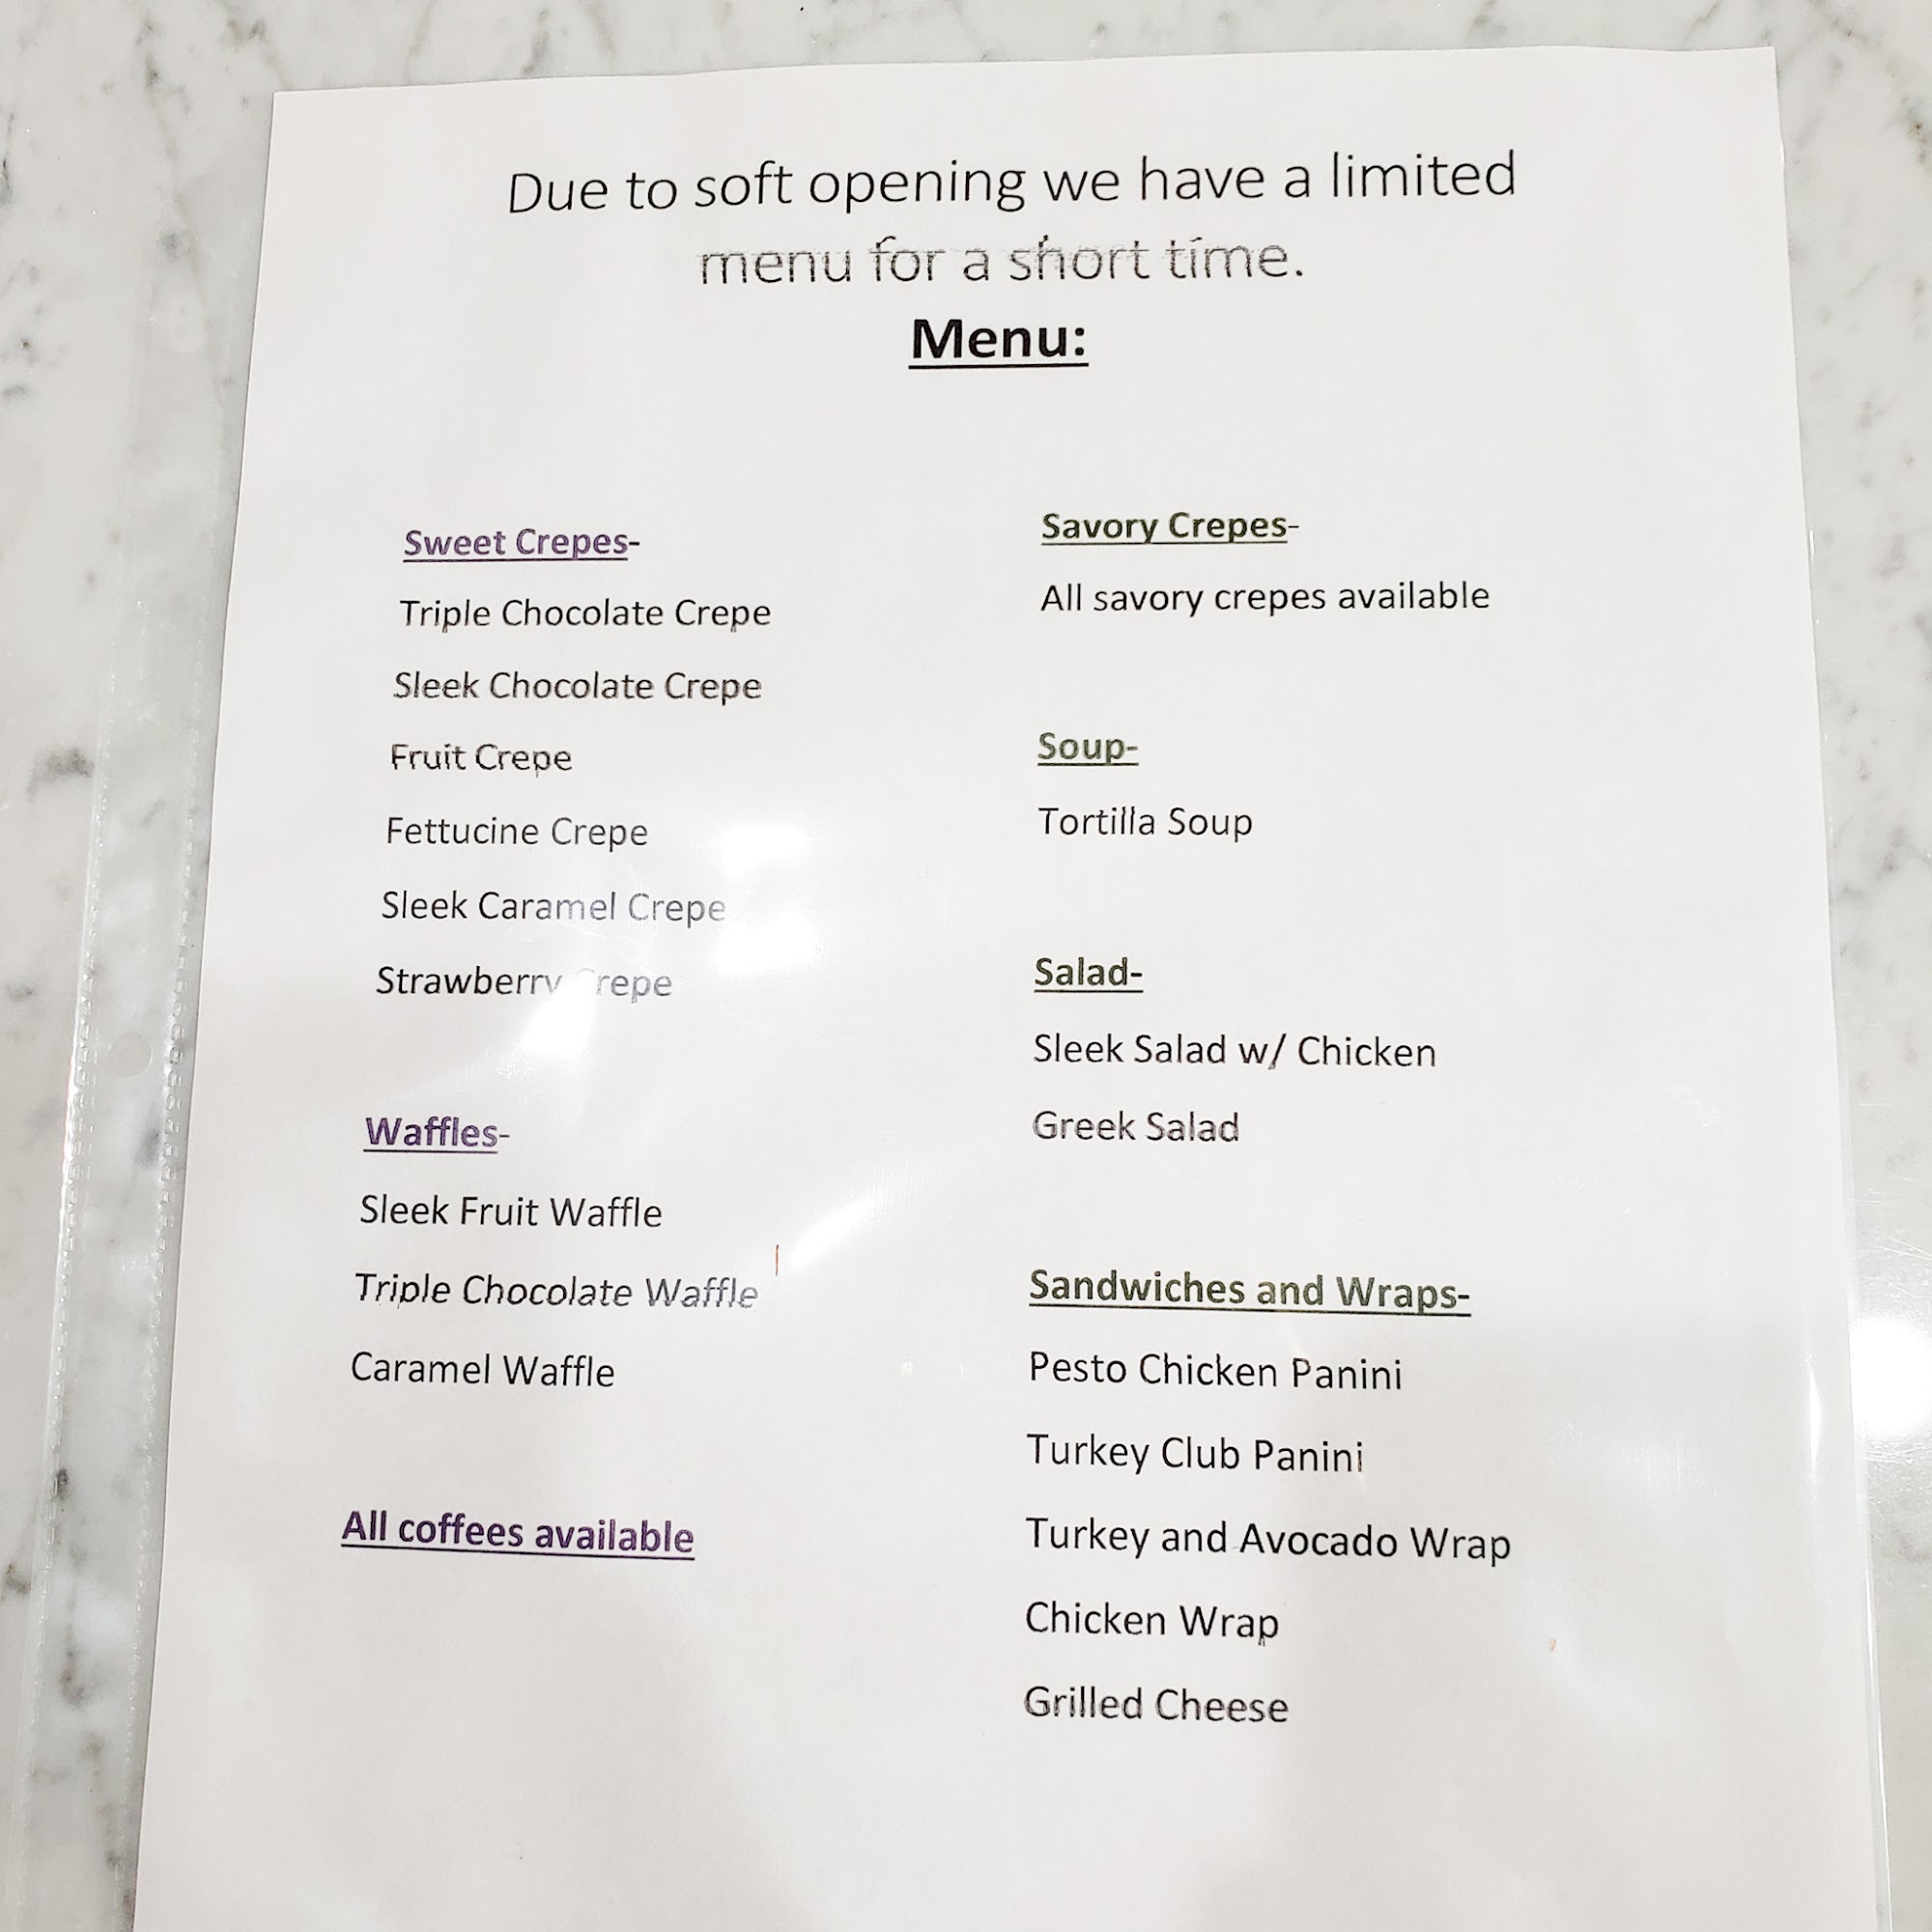 Due to soft opening we have a limited
menu for a short time.
Menu:
Sweet Crepes-
Triple Chocolate Crepe
Sleek Chocolate Crepe
Fruit Crepe
Fettucine Crepe
Sleek Caramel Crepe
Strawberry Crepe
Waffles-
Sleek Fruit Waffle
Triple Chocolate Waffle
Caramel Waffle
All coffees available
Savory Crepes-
All savory crepes available
Soup-
Tortilla Soup
Salad-
Sleek Salad w/ Chicken
Greek Salad
Sandwiches and Wraps-
Pesto Chicken Panini
Turkey Club Panini
Turkey and Avocado Wrap
Chicken Wrap
Grilled Cheese